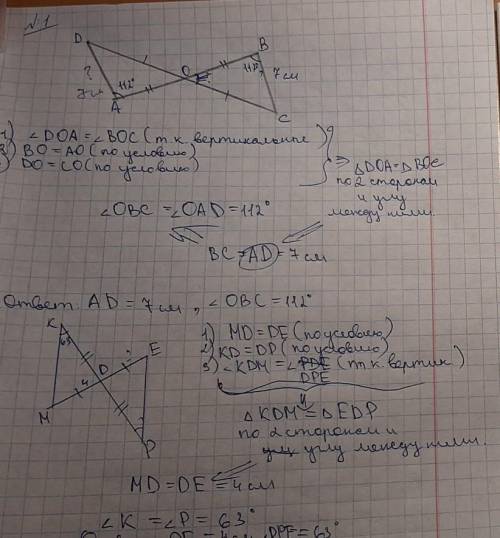 №1
D
O
B
? 112° 112° 7 см
7см
A
C
1) ∠DOA = ∠BOC (т.к. вертикальные)
2) BO = AO (по условию)
DO = CO (по условию)
⇒ △DOA = △BOC
по 2 сторонам
и углу
между ними.
∠OBC = ∠OAD = 112°
BC = AD = 7 см
Ответ: AD = 7 см, ∠OBC = 112°
K
63°
E
?
D
4
M
P
1) MD = DE (по условию)
2) KD = DP (по условию)
3) ∠KDM = ∠PDE (т.к. вертик)
DPE
△KDM = △EDP
по 2 сторонам и
углу между ними.
MD = DE = 4 см
∠K = ∠P = 63°
DE = 4см, DPE = 63°